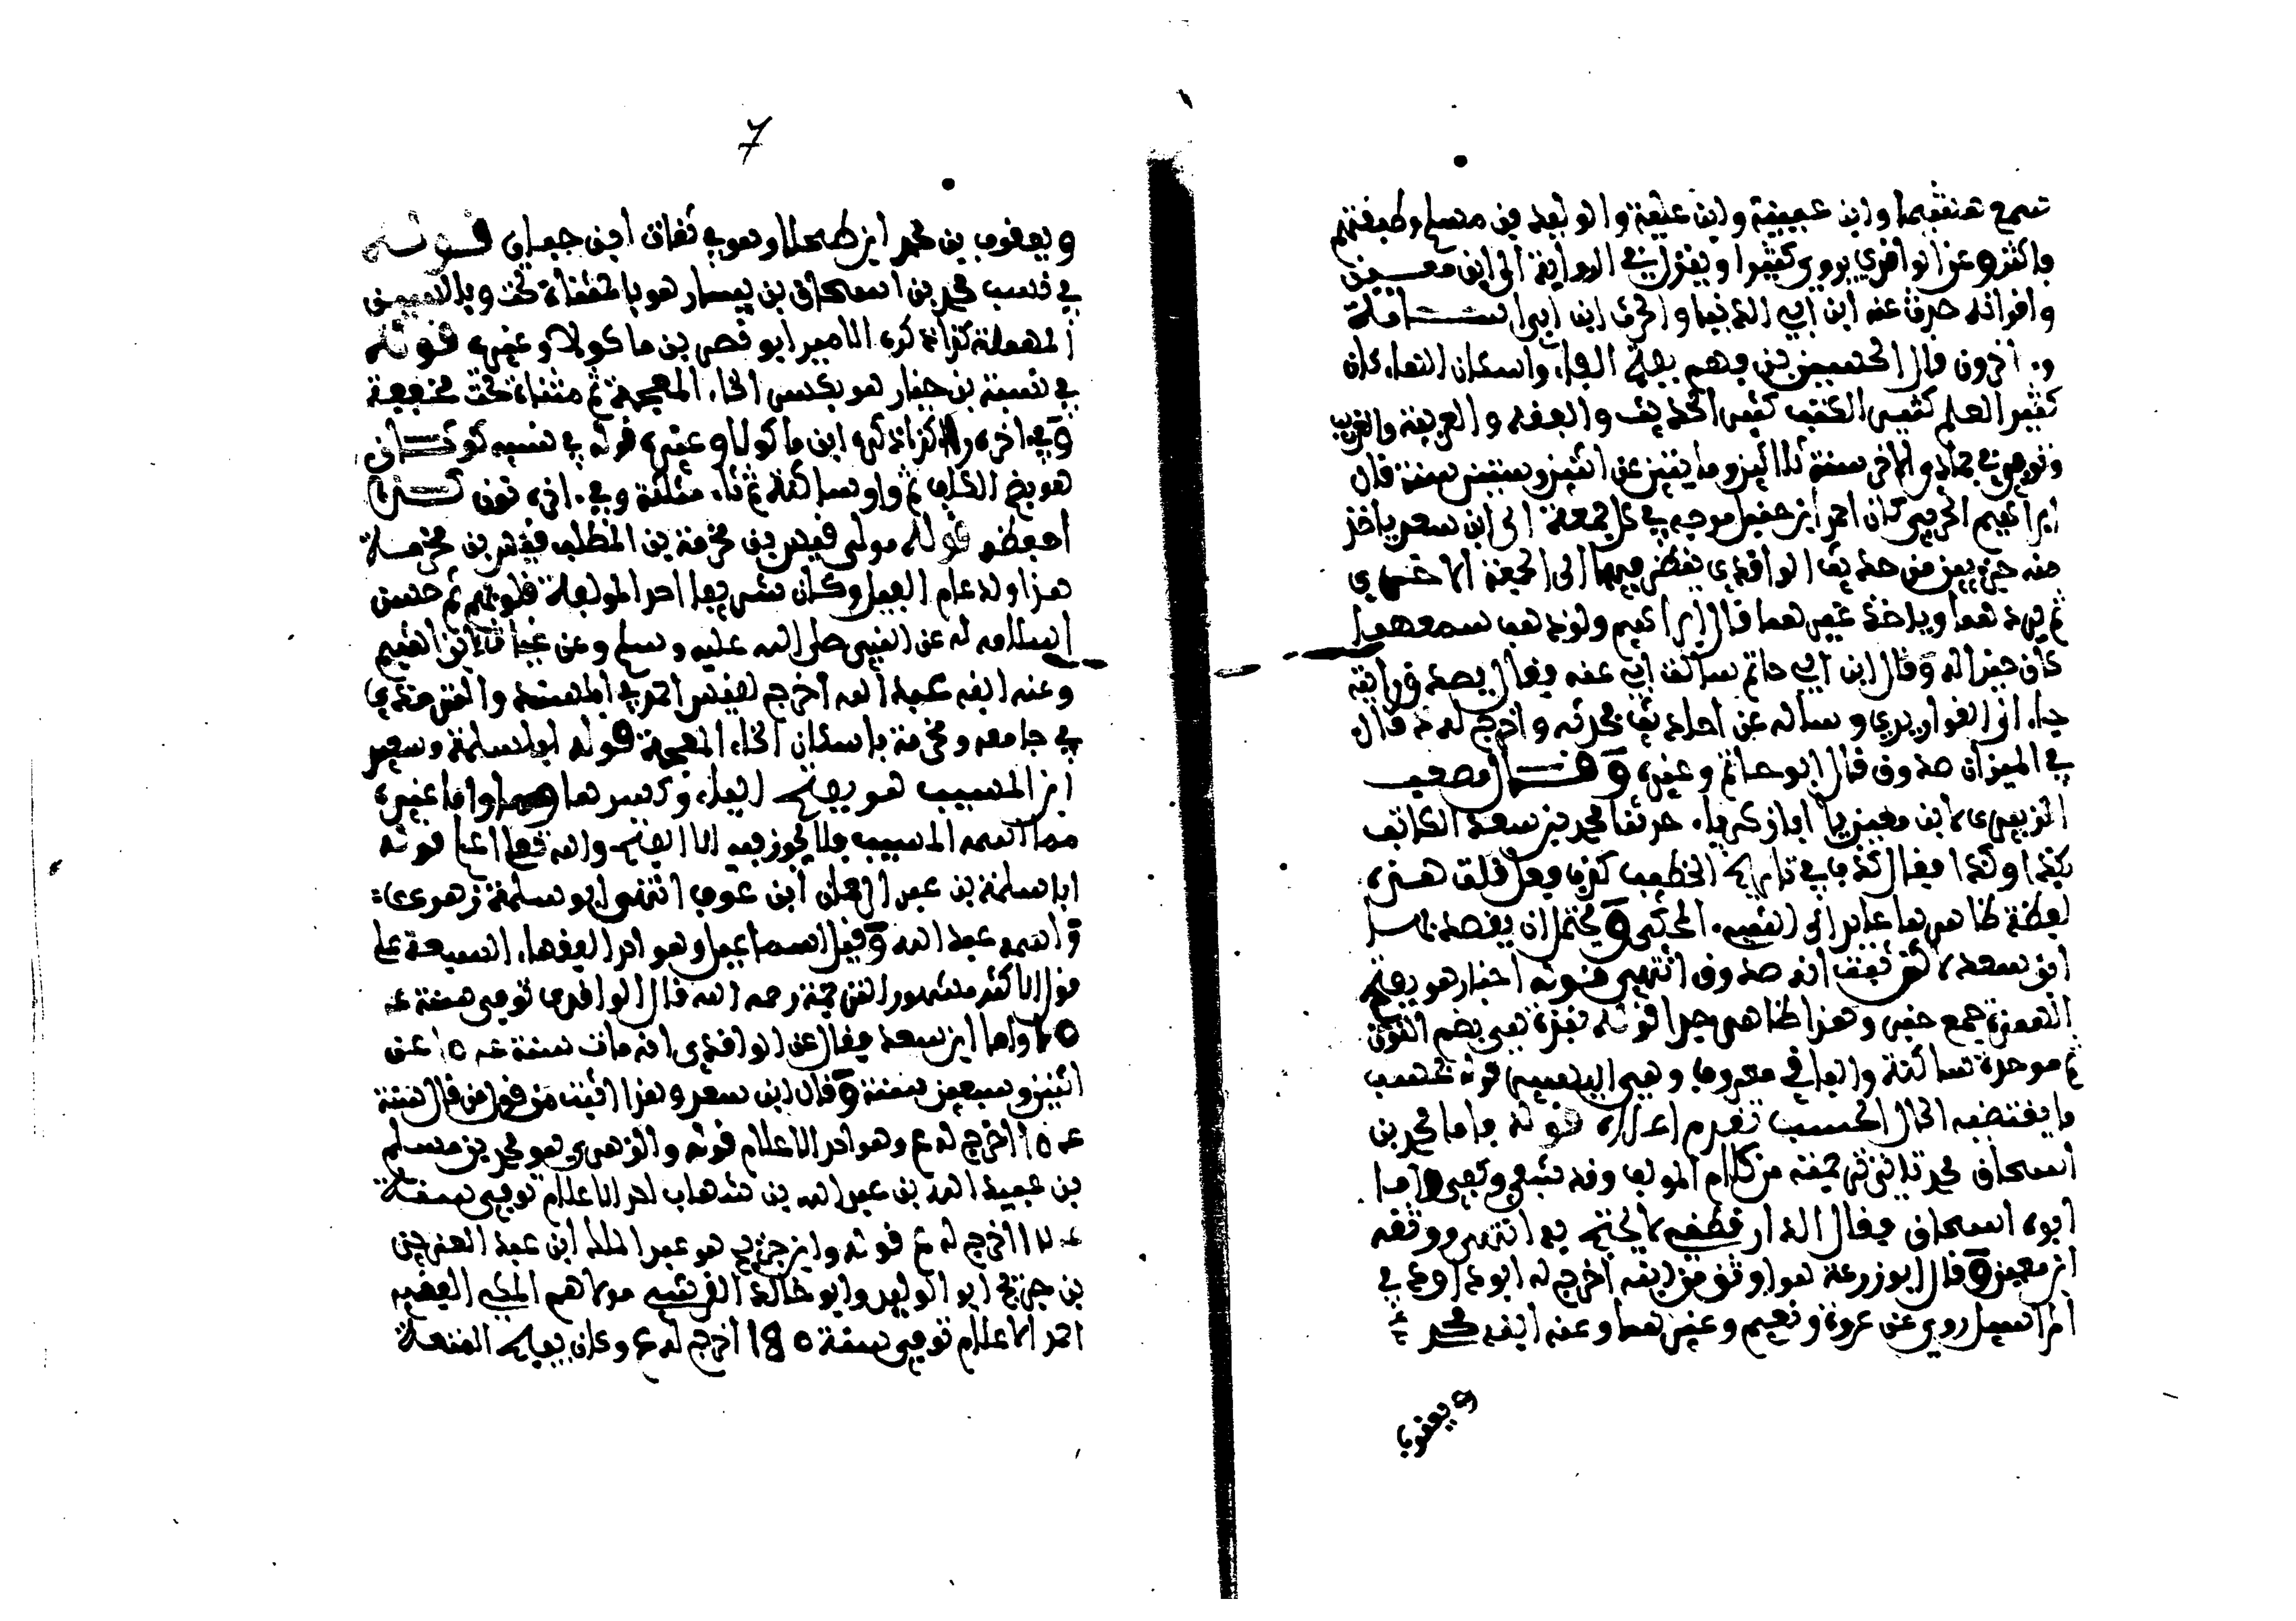 سمع هشيما وابن عيينة وابن علية والوليد بن مسلم وطبقتهم
فاكثر وعن الواقدي يروي كثيرا وينزل في الرواية الى ابن معين
واقرانه حدث عنه ابن ابي الدنيا والحرث ابن ابي اسامة
وءاخرون قال الحسين بن فهم بفتح الفاء واسكان الهاء كان
كثير العلم كثير الكتب كثير الحديث والفقه والغريب
وتوفي في جمادى الاخر سنة ثلاثين ومايتين عن اثنين وستين سنة قال
ابراهيم الحربي كان احمد ابن حنبل يوجه في كل جمعة الى ابن سعد ياخذ
منه جزءين من حديث الواقدي ينظر فيهما الى الجمعة الاخرى
ثم يردهما وياخذ غيرهما قال ابراهيم ولو ذهب سمعهما
كان خيرا له وقال ابن ابي حاتم سالت ابي عنه فقال يصدق رايته
جاء الى القواريري وساله عن احاديث فحدثه واخرج له د قال
في الميزان صدوق قال ابو حاتم وغيره وقال مصعب
الزبيري لابن معين يا ابا زكرياء حدثنا محمد بن سعد الكاتب
بكذا وكذا فقال كذب في تاريخ الخطيب كذب فعل قلت هذه
لفظة ظاهرها عايد الى الشيء المحكي ويحتمل ان يقصد بها
ابن سعد لكن ثبت انه صدوق انتهى قوله اخبار هو بفتح
الهمزة جمع خبر وهذا ظاهر جدا قوله نبزة هي بضم النون
ثم موحدة ساكنة والباقي معروف وهي اليسير قوله بحسب
ما يقتضيه الحال الحسب تقدم اعلاه قوله فاما محمد بن
اسحاق محمد تاتي ترجمته من كلام المولف وقد شفى وكفى واما
ابوه اسحاق فقال الدارقطني لا يحتج به انتهى ووثقه
ابن معين وقال ابو زرعة هو اوثق من ابنه اخرج له ابو داود في
المراسيل روى عن عروة ونعيم وغيرهما وعنه ابنه محمد
ويعقوب
7
ويعقوب بن محمد ابن طحلا وهو في ثقات ابن حبان قوله
في نسب محمد بن اسحاق بن يسار هو بالمثناة تحت وبالسين
المهملة كذا ذكره الامير ابو نصر بن ماكولا وغيره قوله
في نسبة بن خيار هو بكسر الخاء المعجمة ثم مثناة تحت مخففة
وفي اخره راء كذا ذكره ابن ماكولا وغيره قوله في نسبه كوثان
هو بضم الكاف ثم واو ساكنة ثم ثاء مثلثة وفي اخره نون
احفظه قوله مولى قيس بن مخرمة بن المطلب قيس بن مخرمة
هذا ولد عام الفيل وكان شريفا احد المولفة قلوبهم ثم حسن
اسلامه له عن النبي صلى الله عليه وسلم وعن
وعنه ابنه عبد الله اخرج لقيس احمد في المسند والترمذي
في جامعه ومخرمة باسكان الخاء المعجمة قوله ابا سلمة وسعيد
ابن المسيب هو بفتح الياء وكسرها واما غيره
مما اسمه المسيب فلا يجوز فيه الا الفتح والله تعالى اعلم قوله
ابا سلمة بن عبد الرحمان ابن عوف انتهى ابو سلمة زهري
واسمه عبد الله وقيل اسماعيل وهو احد الفقهاء السبعة على
قول الاكثر مشهور الترجمة رحمه الله قال الواقدي توفي سنة
واما ابن سعد فقال عن الواقدي انه مات سنة عن
اثنين وسبعين سنة وقال ابن سعد وهذا اثبت من قول من قال سنة
اخرج له ع وهو احد الاعلام قوله والزهري هو محمد بن مسلم
بن عبيد الله بن عبد الله بن شهاب احد الاعلام توفي سنة
اخرج له ع قوله وابن جريج هو عبد الملك ابن عبد العزيز
بن جريج ابو الوليد وابو خالد القرشي مولاهم المكي الفقيه
احد الاعلام توفي سنة اخرج له ع وكان يبيح المتعة